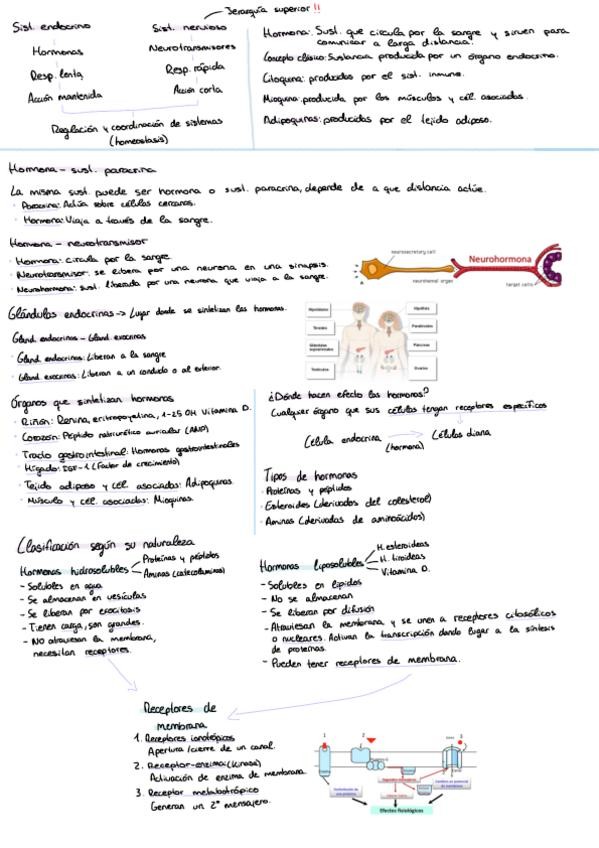 Jerarquía superior !!
Sist. endocrino
Sist. nervioso
Hormonas
Neurotransmisores
Resp. lenta
Resp. rápida
Acción mantenida
Acción corta
Regulación y coordinación de sistemas
(homeostasis)
Hormona: Sust. que circula por la sangre y sirven para
comunicar a larga distancia.
Concepto clásico: Sustancia producida por un órgano endocrino.
Citoquina: producidas por el sist. inmune.
Mioquina: producida por los músculos y cél. asociadas.
Adipoquinas: producidas por el tejido adiposo.
Hormona – sust. paracrina
La misma sust. puede ser hormona o sust. paracrina, depende de a que distancia actúe.
· Paracrina: Actúa sobre células cercanas.
· Hormona: Viaja a través de la sangre.
Hormona – neurotransmisor
· Hormona: circula por la sangre
· Neurotransmisor: se libera por una neurona en una sinapsis.
· Neurohormona: sust. liberada por una neurona que viaja a la sangre.
neurosecretory cell
Neurohormona
neurohemal organ
target cells
Glándulas endocrinas -> Lugar donde se sintetizan las hormonas.
Gland. endocrinas – Gland. exocrinas
· Gland. endocrinas: Liberan a la sangre
· Gland. exocrinas: Liberan a un conducto o al exterior.
Hipotálamo
Hipófisis
Tiroides
Paratiroides
Glándulas
suprarrenales
Páncreas
Testículos
Ovarios
Órganos que sintetizan hormonas
· Riñón: Renina, eritropoyetina, 1-25 OH Vitamina D.
· Corazón: Péptido natriurético auricular (ANP)
· Tracto gastrointestinal: Hormonas gastrointestinales
· Hígado: IGF-1 (Factor de crecimiento)
· Tejido adiposo y cél. asociadas: Adipoquinas.
· Músculo y cél. asociadas: Mioquinas.
¿Dónde hacen efecto las hormonas?
Cualquier órgano que sus células tengan receptores específicos
Célula endocrina
(hormona)
Células diana
Tipos de hormonas
· Proteínas y péptidos
· Esteroides (derivados del colesterol)
· Aminas (derivadas de aminoácidos)
Clasificación según su naturaleza
Hormonas hidrosolubles
Proteínas y péptidos
Aminas (catecolaminas)
- Solubles en agua
- Se almacenan en vesículas
- Se liberan por exocitosis
- Tienen carga, son grandes.
- No atraviesan la membrana,
necesitan receptores.
Hormonas liposolubles
H. esteroideas
H. tiroideas
Vitamina D.
- Solubles en lípidos
- No se almacenan
- Se liberan por difusión
- Atraviesan la membrana y se unen a receptores citosólicos
o nucleares. Activan la transcripción dando lugar a la síntesis
de proteínas.
- Pueden tener receptores de membrana.
Receptores de
membrana
1. Receptores ionotrópicos
Apertura/cierre de un canal.
2. Receptor-enzima (kinasa)
Activación de enzima de membrana
3. Receptor metabotrópico
Generan un 2º mensajero.
1
2
3
Efectos fisiológicos